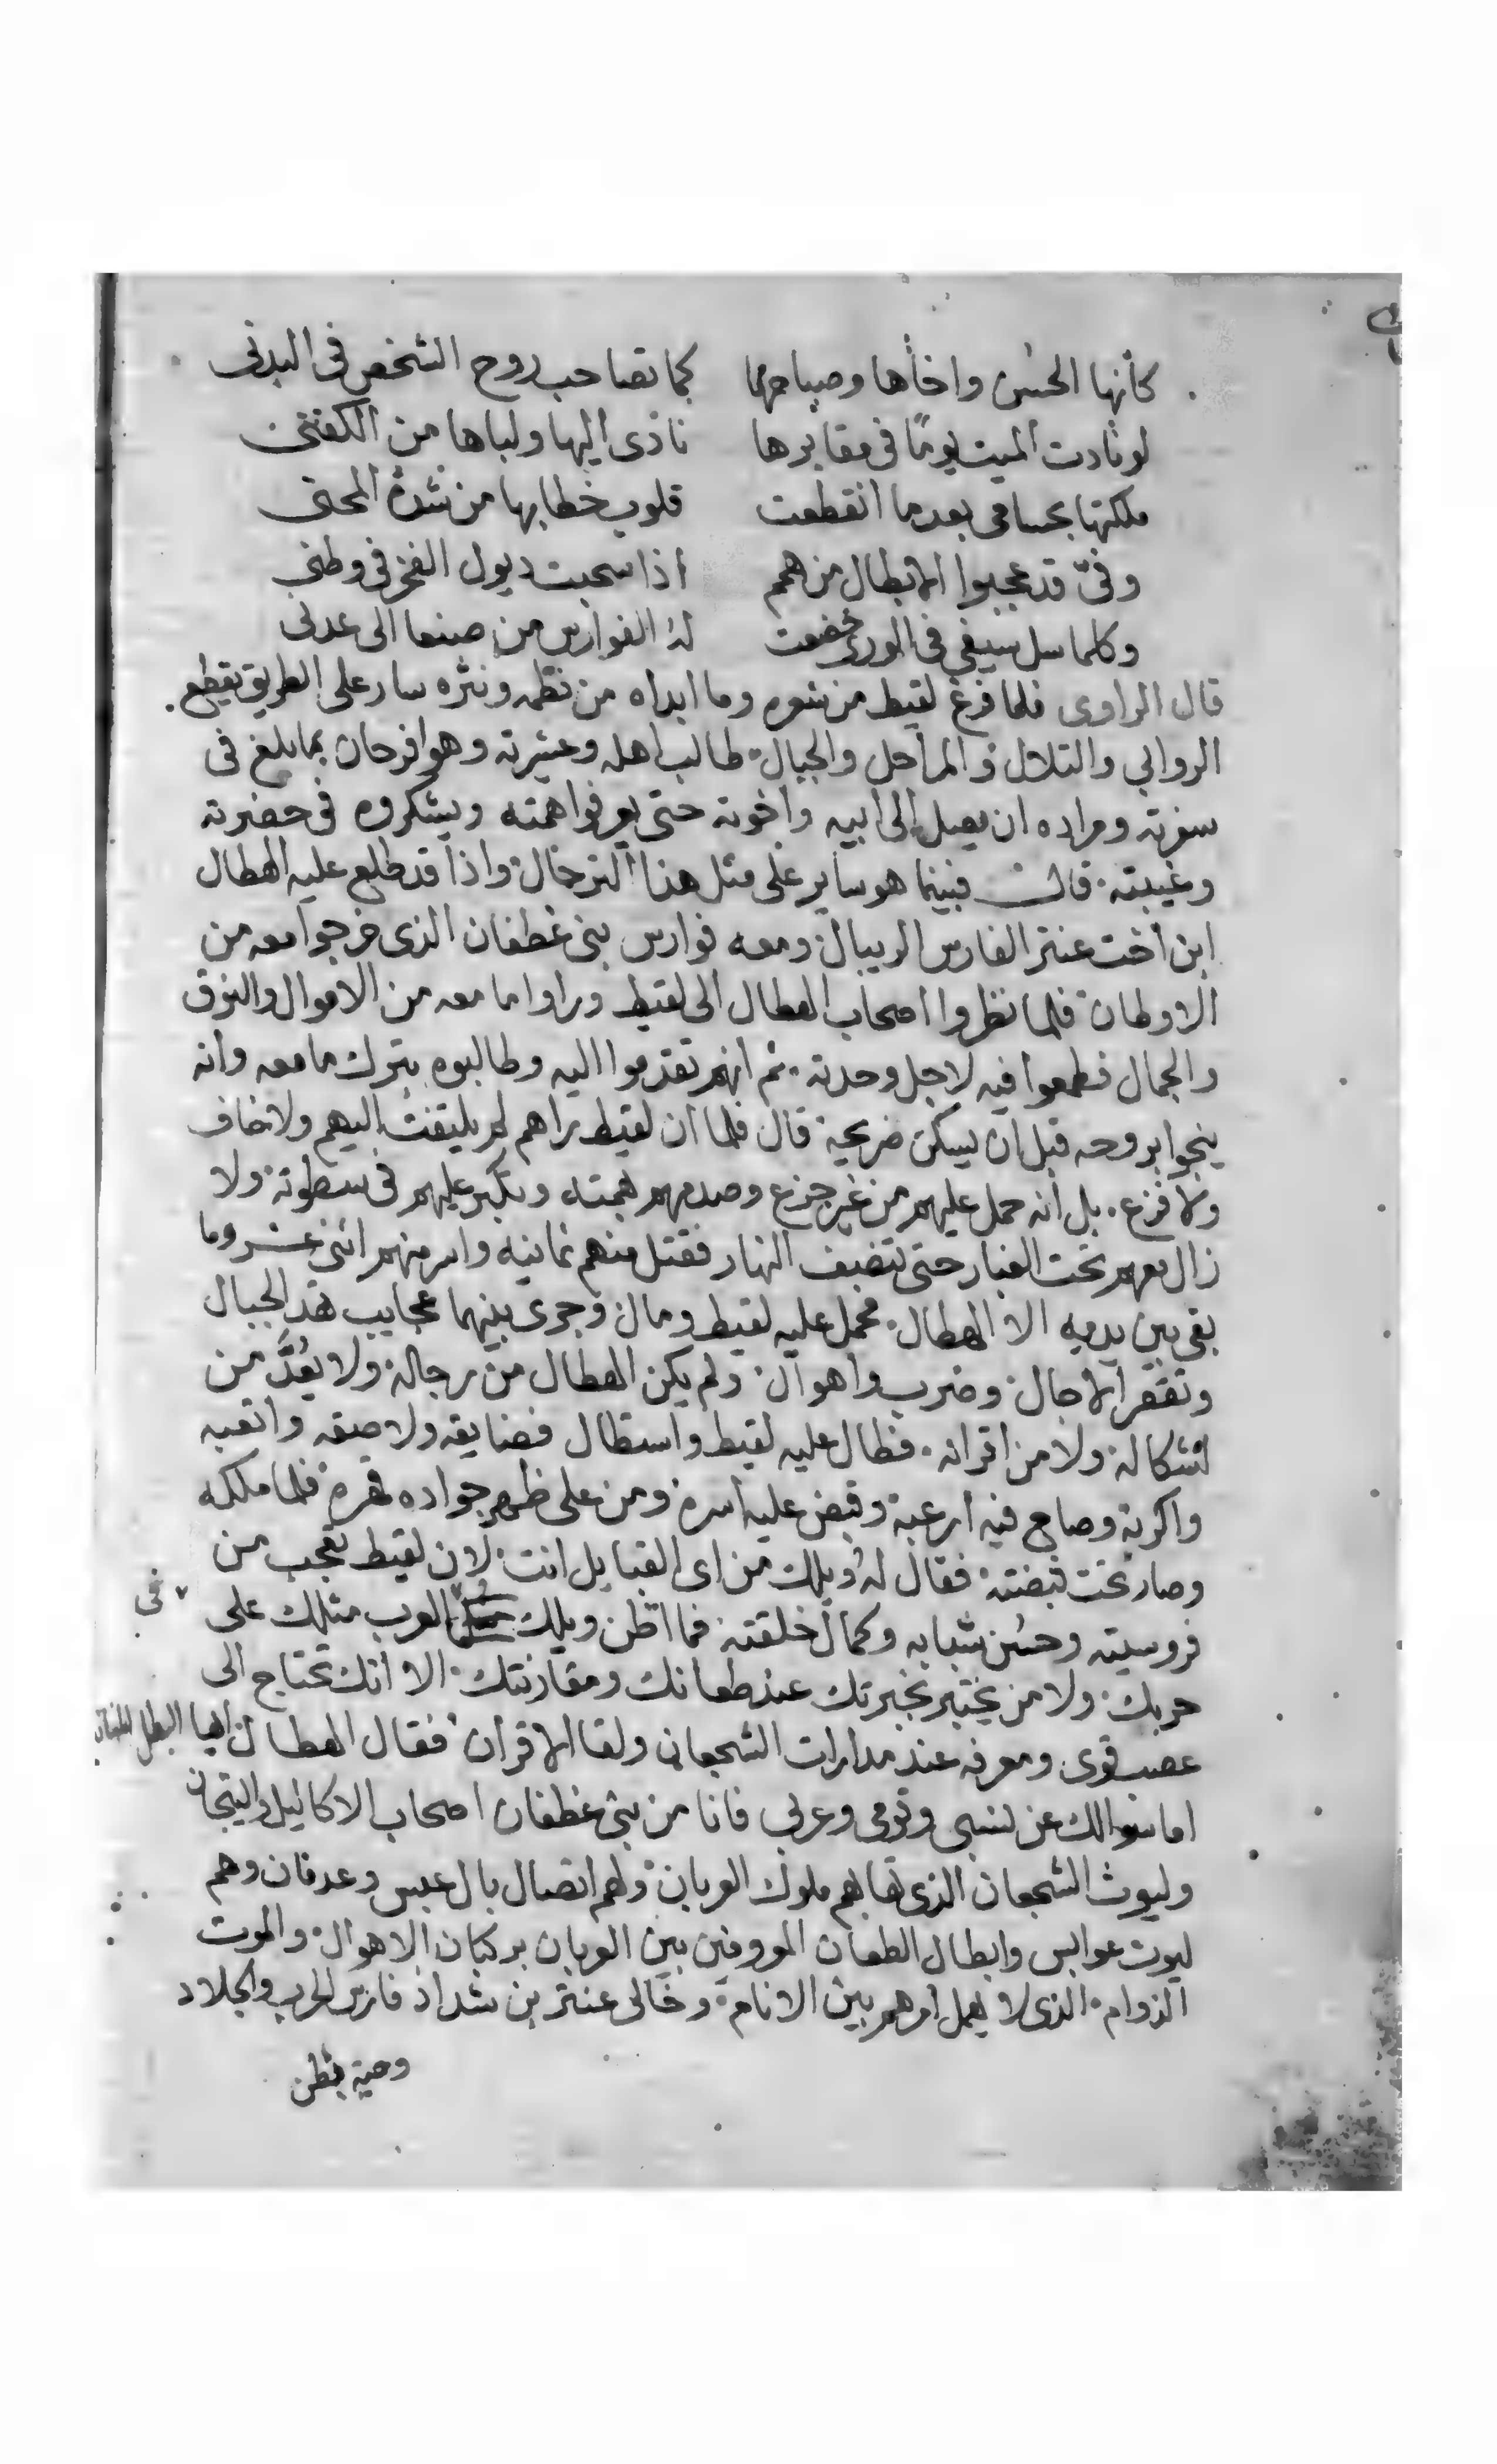 كأنها الحسن واخاها وصباحها كما تصاحب روح الشخص فى البدنى
لو نادت الميت يومًا فى مقابرها نادى اليها ولباها من الكفنى
ملكتها بحسامى بعدما انقطعت قلوب خطابها من شدة المحنى
وفىّ قد عجبوا الابطال من هممى اذا سحبت ديول الفخر فى وطنى
وكلما سل سيفى فى الورى خضعت لهُ الفوارس من صنعا الى عدنى
قال الراوى فلما فرغ لقيط من شعره وما ابداه من نظمه ونثره سار على الطريق يقطع
الروابي والتلال والمراحل والجبال طالب اهله وعشيرته وهو افرحان بما بلغ فى
سفرته ومراده ان يصل الى ابيه واخوته حتى يعرفوا همته ويشكروه فى حضرته
وغيبته قال فبينما هو ساير على مثل هذا الترحال واذا قد طلع عليه الهطال
ابن أخت عنتر الفارس الريبال ومعه فوارس بنى غطفان الذى خرجوا معه من
الاوطان فلما نظروا اصحاب الهطال الى لقيط وراوا ما معه من الاموال والنوق
والجمال فطمعوا فيه لاجل وحدته ثم انهم تقدموا اليه وطالبوه بترك ما معه وانه
ينجوا بروحه قبل ان يسكن ضريحه قال فلما ان لقيط راهم لم يليتفت اليهم ولا خاف
ولا فزع بل انه حمل عليهم من غير جزع وصدمهم بهمته وتكبر عليهم فى سطوته ولا
زال معهم تحت الغبار حتى تنصف النهار فقتل منهم ثمانيه واسر منهم اثنى عشر وما
بقى بين يديه الا الهطال فحمل عليه لقيط ومال وجرى بينهما عجايب تهد الجبال
وتقصر الاجال وضرب واهوال ولم يكن الهطال من رجاله ولا يُعدَّ من
اشكاله ولا من اقرانه فطال عليه لقيط واستطال فضايقه ولاصقه واتعبه
واكربه وصاح فيه ارعبه وقبض عليه اسره ومن على ظهر جواده قهره فلما ملكه
وصار تحت قبضته فقال لهُ ويلك من اى القبايل انت لان لقيط تعجب من
فروسيته وحسن شبابه وكمال خلقته فما اظن ويلك العرب مثلك على فى
حربك ولا من يختبر بخبرتك عند طعانك ومقارنتك الا انك تحتاج الى
عصب قوى ومعرفه عند مدارات الشجعان ولقا الاقران فقال الهطال ايها البطل
اما سوالك عن نسبى وقومى وعربي فانا من بنى غطفان اصحاب الاكاليل والتيجان
وليوث الشجعان الذى تهابهم ملوك العربان ولهم اتصال بال عبس وعدفان وهم
ليوت عوابس وابطال الطعان المعروفين بين العربان بركبان الاهوال والموت
الزوام الذى لا يهمل امرهم بين الانام وخالى عنتر بن شداد فارس الحرب والجلاد
وحية بطن